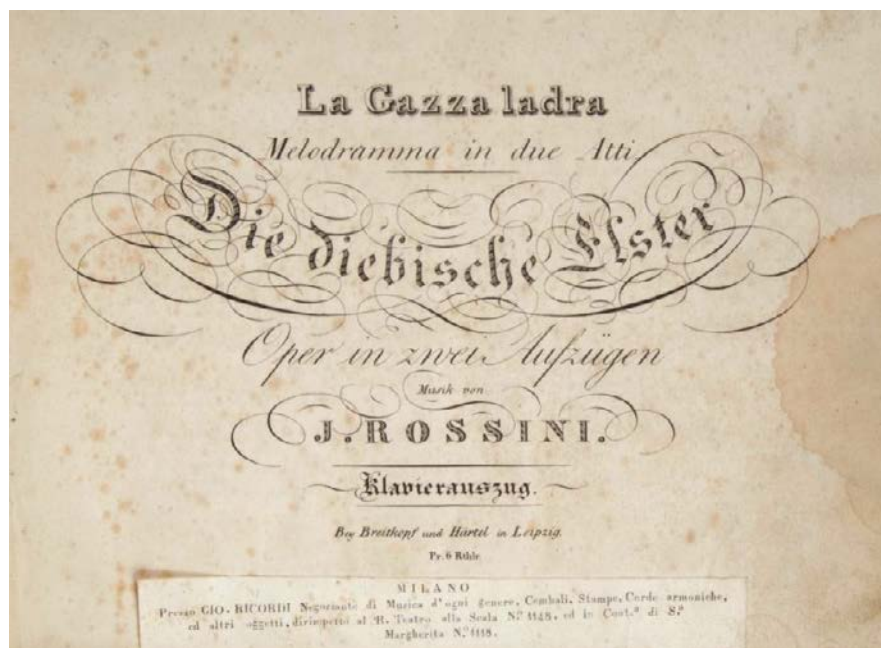 La Gazza ladra
Melodramma in due Atti
Die diebische Elster
Oper in zwei Aufzügen
Musik von
J. ROSSINI.
Klavierauszug.
Bey Breitkopf und Härtel in Leipzig.
Pr. 6 Rthlr.
MILANO
Presso GIO. RICORDI Negoziante di Musica d'ogni genere, Cembali, Stampe, Corde armoniche,
ed altri oggetti, dirimpetto al R. Teatro alla Scala N.º 1148, ed in Cont.ª di S.ª
Margherita N.º 1118.